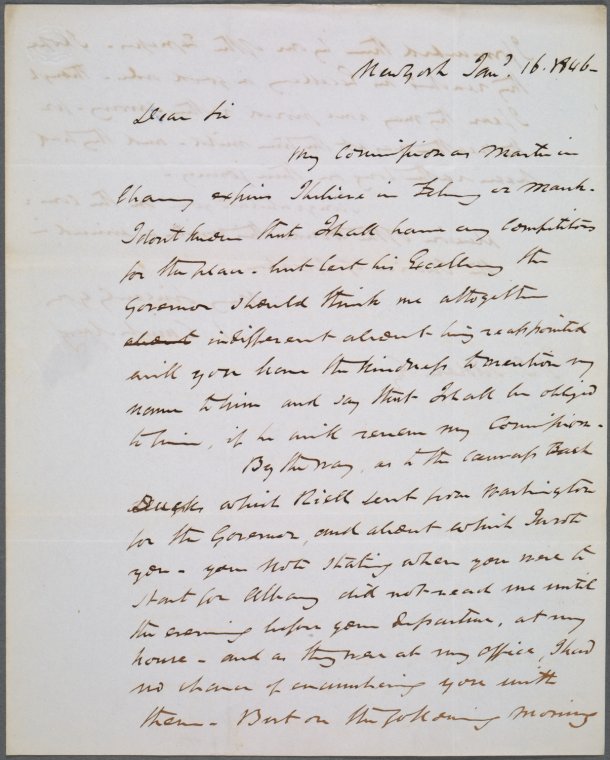 New York Jan'y. 16. 1846-
Dear Sir
My Commission as Master in
Chancy expires I believe in Feb'y or March.
I don't know that I shall have any Competitors
for the place - but lest his Excellency the
Governor should think me altogether
about indifferent about being reappointed
will you have the kindness to mention my
name to him and say that I shall be obliged
to him, if he will renew my Commission.
By the way, as to the Canvass Back
Ducks which Riell sent from Washington
for the Governor, and about which I wrote
you - your note stating when you were to
start for Albany did not reach me until
the evening before your departure, at my
house - and as they were at my office, I had
no chance of encumbering you with
them - But on the following morning